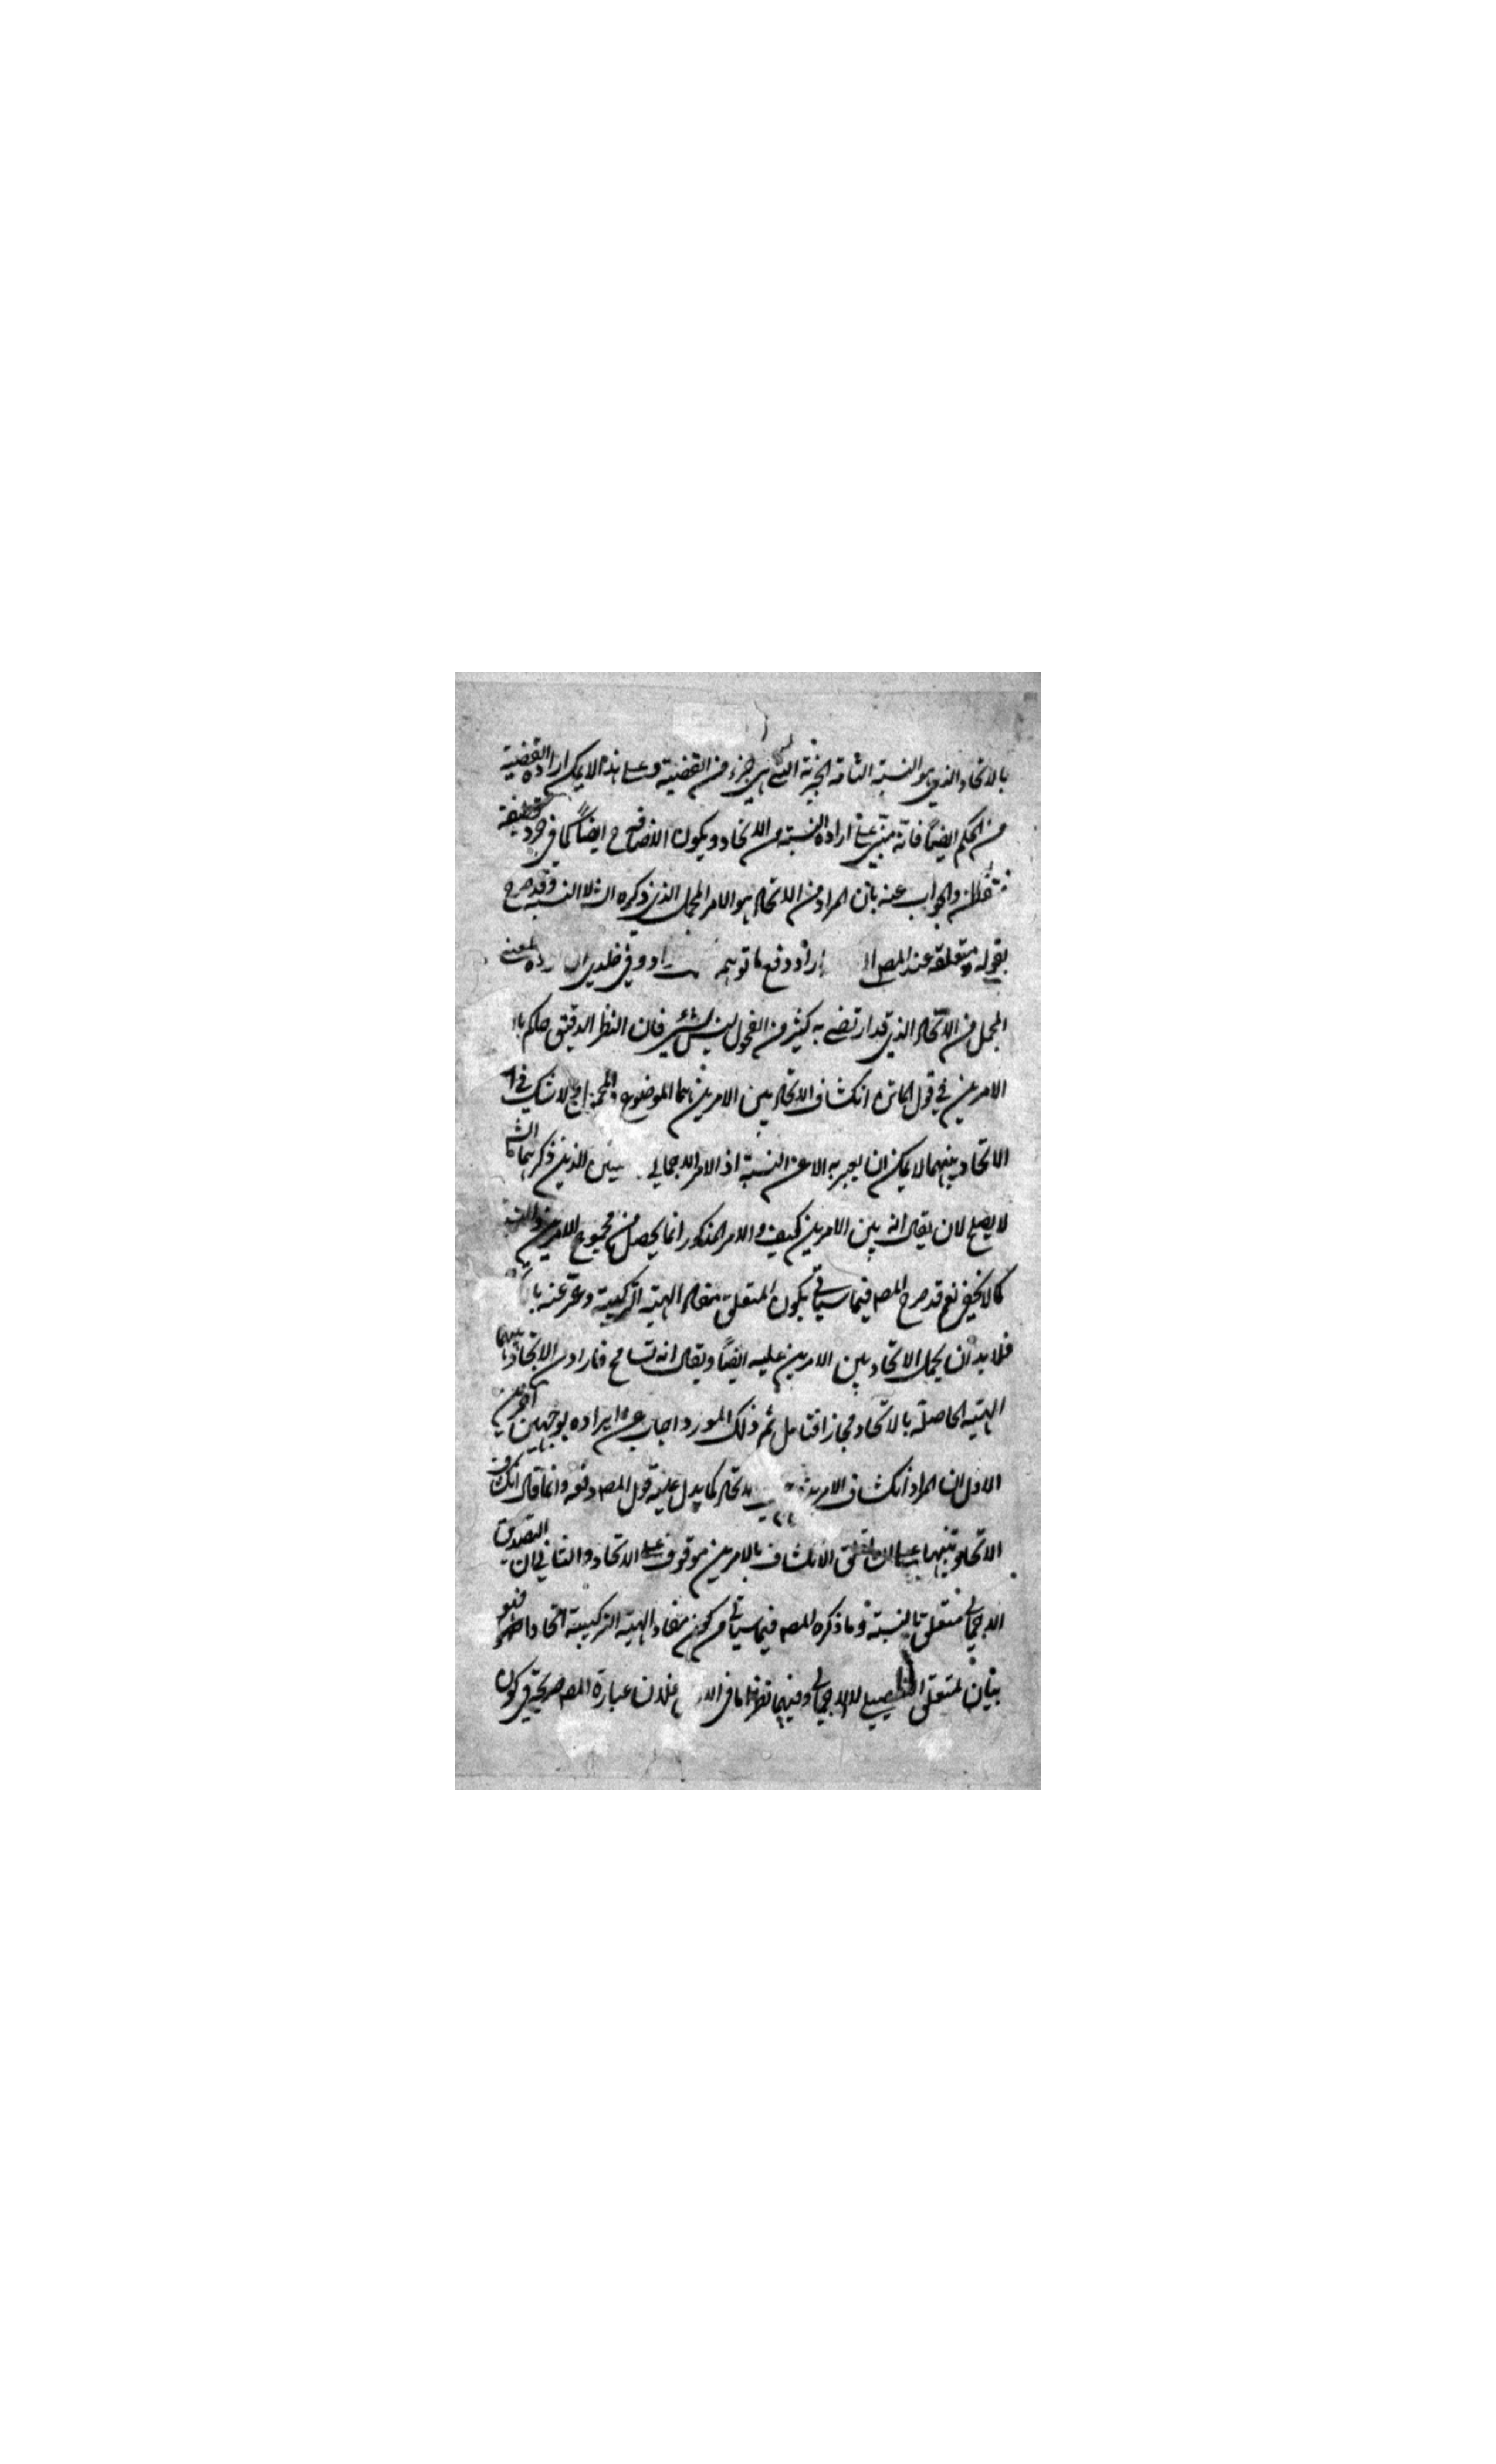 بالاتحاد الذي هو النسبة التامة الخبرية التي هي جزء من القضية وعلى هذا لا يمكن ارادة القضية
من الحكم ايضا فانه مبني على ارادة النسبة من الاتحاد ويكون الاضافة ح ايضا كما في جرد قطيفة
والجواب عنه بان المراد من الاتحاد هو الامر المجمل الذي ذكره الش لا النسبة وقد صرح
بقوله ومتعلقه عند المص دفع ما توهم وفي خلدي ان المعنى
المجمل من الاتحاد الذي قد ارتضى به كثير من الفحول ليس بشيء فان النظر الدقيق حاكم با
الامرين في قول الماتن انكشاف الاتحاد بين الامرين هما الموضوع والمحمول ولا شك في ا
الاتحاد بينهما لا يمكن ان يعبر به الا عن النسبة اذ الامر الاجمالي الذين ذكرهما الش
لا يصلح لان يقال انه بين الامرين كيف والامر المذكور انما يحصل من مجموع الامرين
كما لا يخفى نعم قد صرح المص فيما سياتي بكون المتعلق مفاد الهيئة التركيبية وعبر عنه با
فلا بد ان يحمل الاتحاد بين الامرين عليه ايضا ويقال انه تسامح فاراد من الاتحاد بينهما
الهيئة الحاصلة بالاتحاد مجازا فتامل ثم ذلك المورد اجاب عن ايراده بوجهين آخرين
الاول ان المراد انكشاف الامرين كما يدل عليه قول المص دفعة وانما قال انكشاف
الاتحاد بينهما تعلق الانكشاف بالامرين موقوف على الاتحاد والثاني ان التصديق
الاجمالي متعلق بالنسبة وما ذكره المص فيما سياتي من كون مفاد الهيئة التركيبية اتحادا فهو
بيان لمتعلق التفصيلي لا الاجمالي وفيهما نظر اما في الاول فلان عبارة المص صريحة في كون